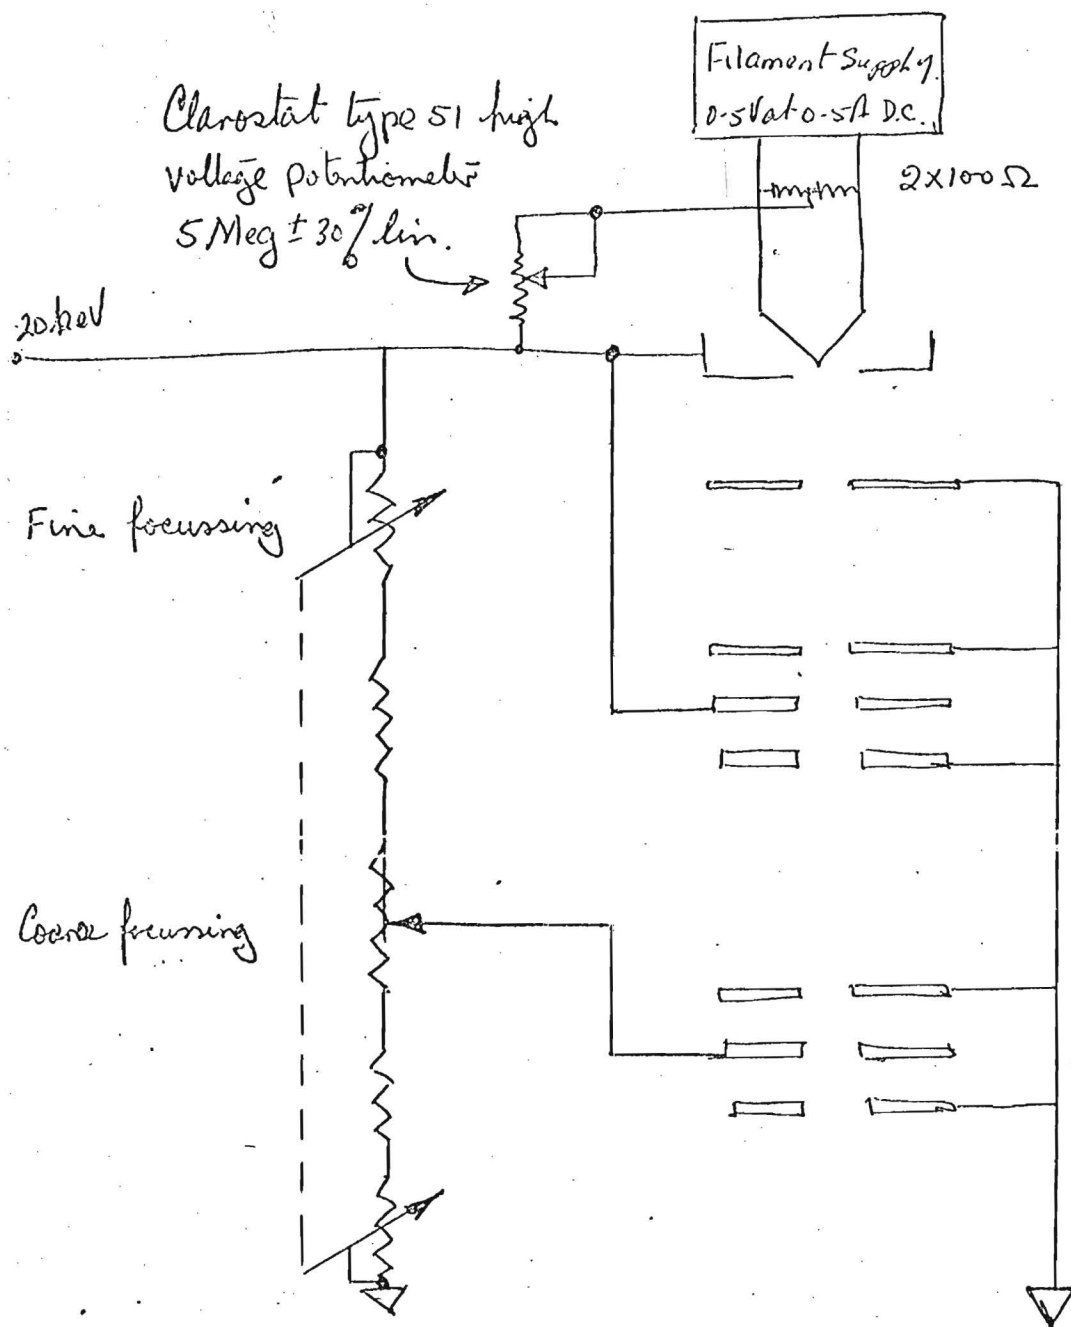 Filament Supply.
0-5V at 0-5A D.C.
Clarostat type 51 high
voltage potentiometer
5 Meg ± 30% lin.
2 x 100 Ω
20 keV
Fine focussing
Coarse focussing